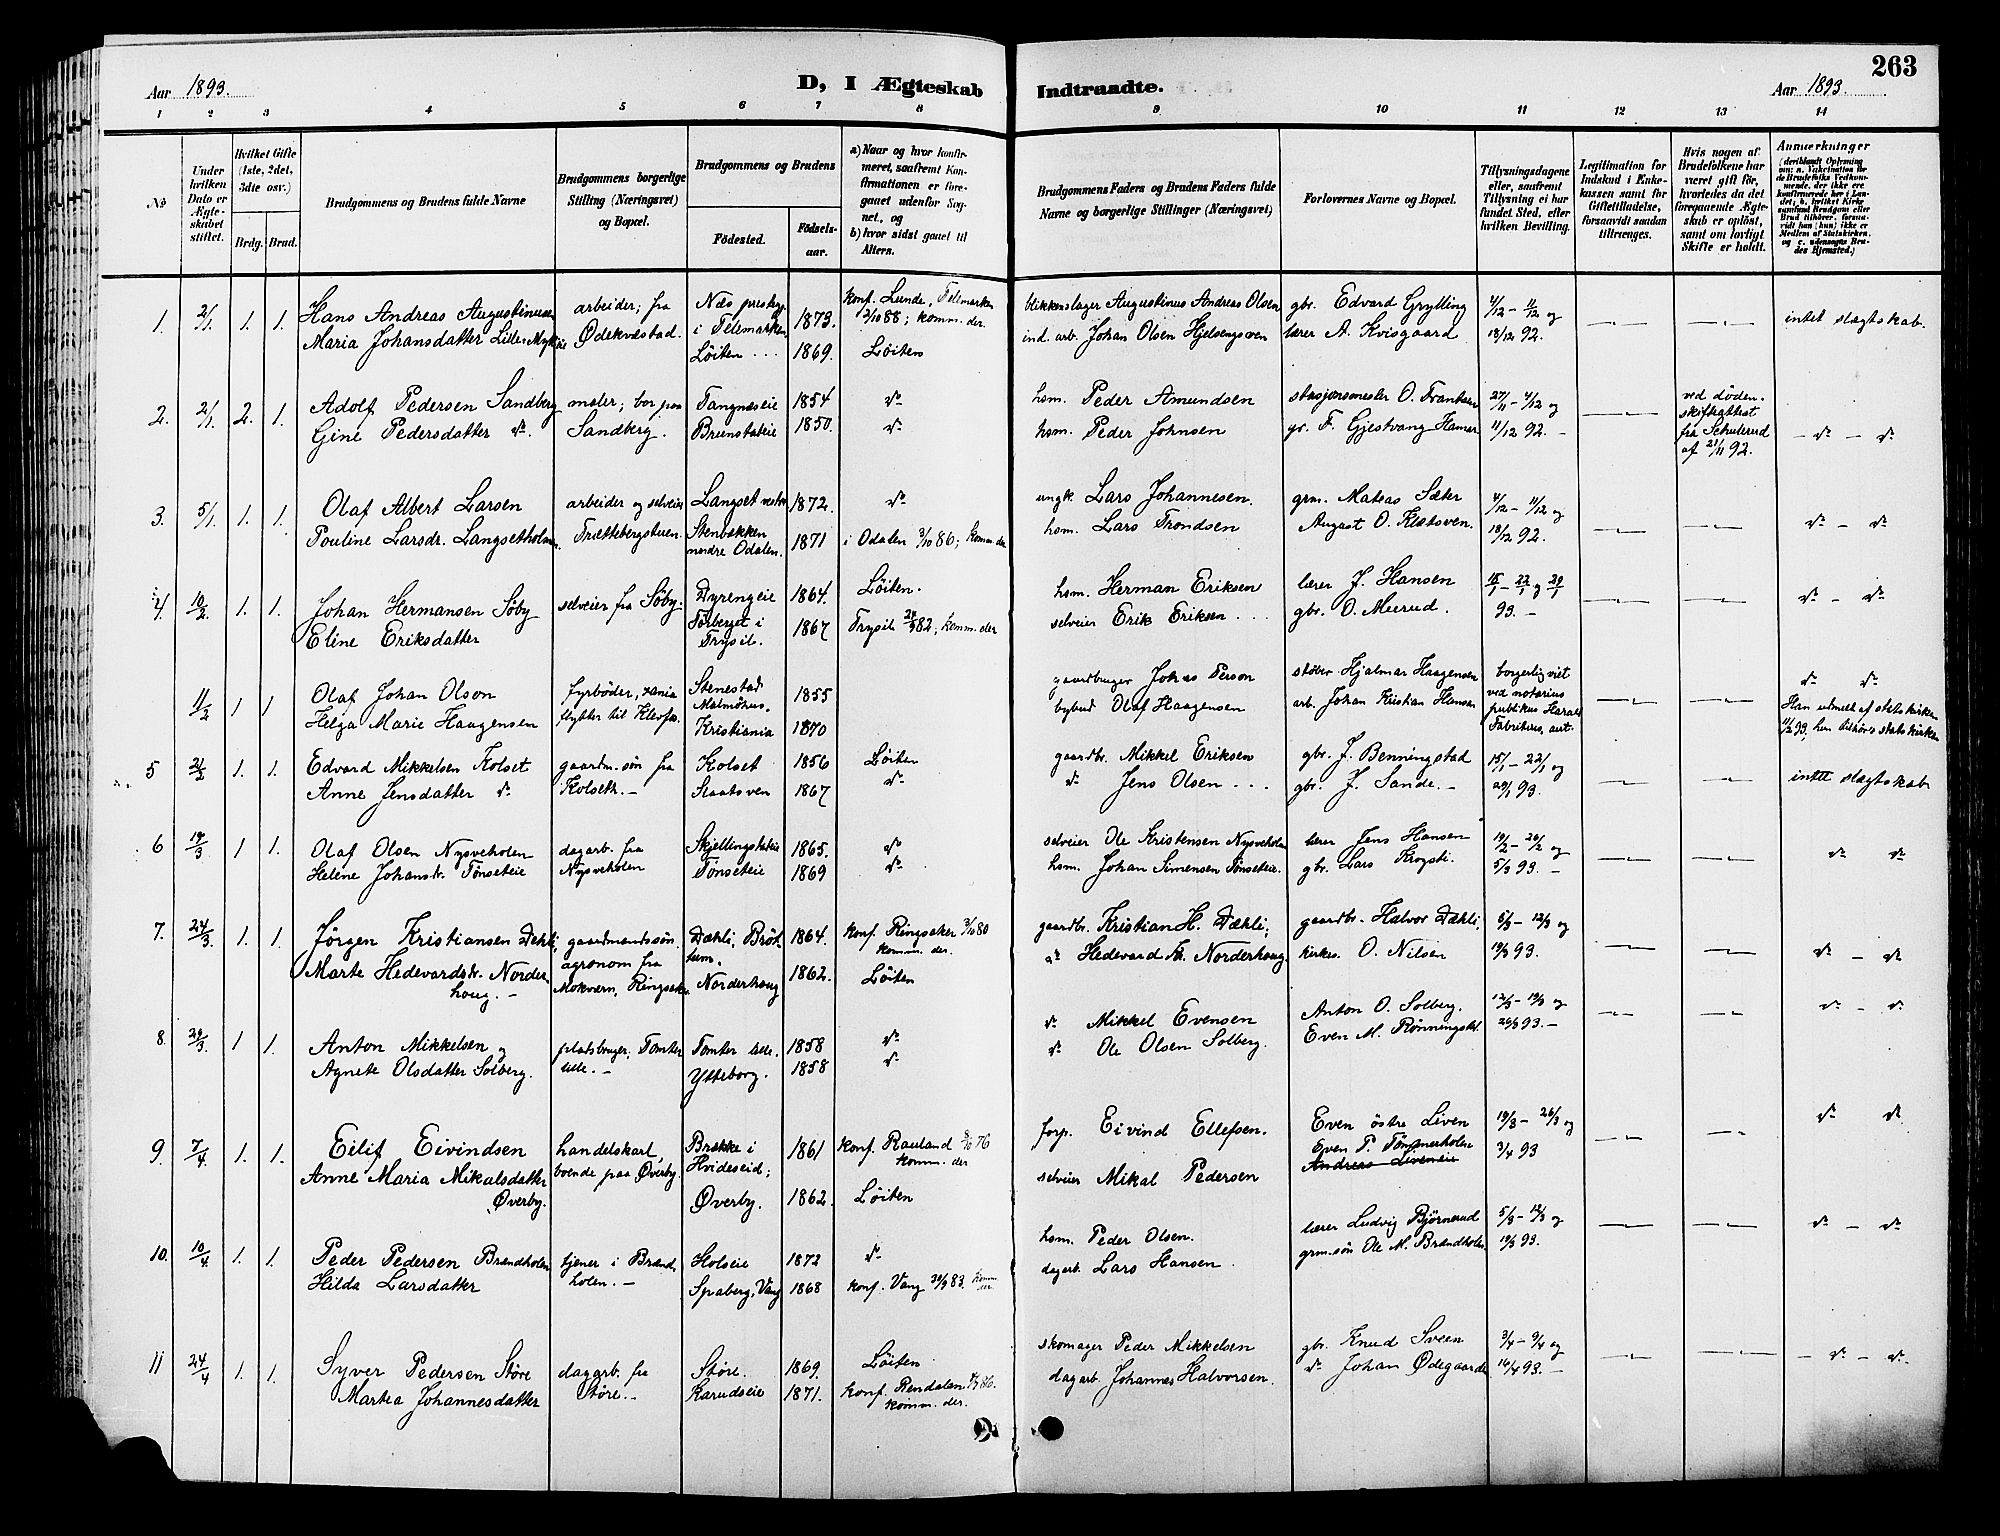 263
Aar 1893.
D, I Ægteskab Indtraadte.
Aar 1893.
1 2 3 4 5 6 7 8 9 10 11 12 13 14
No
Under hvilken Dato er Ægteskabet stiftet.
Hvilket Gifte (1ste, 2det, 3dte osv.)
Brdg. Brud.
Brudgommens og Brudens fulde Navne
Brudgommens borgerlige Stilling (Næringsvei) og Bopæl.
Brudgommens og Brudens
Fødested.
Fødselsaar.
a) Naar og hvor konfirmeret, saafremt Konfirmationen er foregaaet udenfor Sognet, og
b) hvor sidst gaaet til Alters.
Brudgommens Faders og Brudens Faders fulde Navne og borgerlige Stillinger (Næringsvei)
Forlovernes Navne og Bopæl.
Tillysningsdagene eller, saafremt Tillysning ei har fundet Sted, efter hvilken Bevilling.
Legitimation for Indskud i Enkekassen samt for Giftetilladelse, forsaavidt saadan tiltrænges.
Hvis nogen af Brudefolkene har været gift før, hvorledes da det foregaaende Ægteskab er opløst, samt om lovligt Skifte er holdt.
Anmærkninger
(deriblandt Oplysning om: a. Vaccination for de Brudefolks Vedkommende, der ikke ere konfirmerede her i Landet; b. hvilket Kirkesamfund Brudgom eller Brud tilhører, forsaavidt han (hun) ikke er Medlem af Statskirken, og c. udensogns Brudes Hjemsted.)
1. 2/1. 1. 1. Hans Andreas Augustinusen arbeider; fra Næs prestegj. i Telemarken 1873. konf. Lunde, Telemarken 2/10 88; komm. der. blikkenslager Augustinus Andreas Olsen gbr. Edvard Grylling 4/12 – 11/12 og intet slægtskab.
Maria Johansdatter Lille-Myklie Ødekvæstad. Löiten ... 1869. Löiten ind. arb. Johan Olsen Hjelsengsven lærer A. Kvisgaard 18/12 92.
2. 2/1. 2. 1. Adolf Pedersen Sandberg maler; bor paa Tangnæseie 1854 do hsm. Peder Amundsen stasjonsmester O. Frantsen 27/11 – 4/12 og ved døden. skifteattest
Gine Pedersdatter do. Sandberg. Brunstadeie 1850. do. hsm. Peder Johnsen gr. F. Gjestvang Hamar 11/12 92. – fra Schulerud af 21/11 92. – do – do
3. 5/1. 1. 1. Olaf Albert Larsen arbeider og selveier Langset vestre 1872. do ungk. Lars Johannesen. grm. Mateas Sæter 4/12 – 11/12 og
Pouline Larsdr. Langsetholmen. Trættebergstuen. Stenbækken nordre Odalen. 1871 i Odalen 3/10 86; komm. der hsm. Lars Trondsen August O. Kletsven. 18/12 92. do – do
4. 10/2 1. 1. Johan Hermansen Søby selveier fra Søby. Dyrengeie 1864. Löiten. hsm. Herman Eriksen lærer J. Hansen 15/1 – 22/1 og 29/1
Eline Eriksdatter Forberget i Trysil. 1867 Trysil 24/9 82; komm. der selveier Erik Eriksen ... gbr. O. Meerud. 93. do – do
11/2 1 1 Olaf Johan Olson fyrbøder, xania Stenestad Malmöhus. 1855 gaardbruger Johas Person støber Hjalmar Haagensen borgerlig viet ved notarius do do
Helga Marie Haagensen flytter til Klevfos. Kristiania 1870 bybud Olaf Haagensen arb. Johan Kristian Hansen publikus Harald Fabritius, aut. Han udmeldt af statskirken 11/2 93, hun tilhører statskirken
5 21/2 1. 1. Edvard Mikkelsen Kolset gaardm. søn fra Kolset 1856 Löiten gaardbr. Mikkel Eriksen gbr. J. Benningstad 15/1 – 22/1 og
Anne Jensdatter do Kolseth. – Staatsven 1867 do do Jens Olsen ... gbr. J. Sande. – 29/1 93. intet slægtskab
6 14/3 1 1. Olaf Olsen Nysveholen dagarb. fra Skjellingstadeie 1865. do selveier Ole Kristensen Nysveholen lærer Jens Hansen 19/2 – 26/2 og
Helene Johansdr. Tönseteie Nysveholen Tönseteie 1869 do hsm. Johan Simensen Tönseteie. gbr. Lars Krogsti. 5/3 93. – do do
7. 24/3. 1. 1. Jørgen Kristiansen Dæhli; gaardmandssøn. Dæhli, Brøttum. 1864. konf. Ringsaker 3/10 80 komm. der. gaardbr. Kristian H. Dæhli; gaardbr. Halvor Dæhli 5/3 – 12/3 og
Marte Hedevardsdr. Norderhoug. – agronom fra Mokværn, Ringsaker Norderhoug 1862. Löiten do Hedevard Norderhoug. kirkes. O. Nilsen 19/3 93. do – do
8. 29/3. 1 1. Anton Mikkelsen og pladsbruger. Tomter Tomter lille. 1858 do do Mikkel Evensen Anton O. Solberg. 12/3 – 19/3 og do – do
Agnete Olsdatter Solberg. lille. – Ytteborg. 1858 do do Ole Olsen Solberg. Even M. Rønningstad. 26/3 93. –
9. 7/4. 1. 1. Eilif Eivindsen handelskarl, Brække i Hvideseid; 1861 konf. Rauland 8/10 76 komm. der forp. Eivind Ellefsen. Even østre Liven 19/3 – 26/3 og do do
Anne Maria Mikalsdatter Øverby. boende paa Øverby. Øverby. 1862. Löiten selveier Mikal Pedersen Even P. Tømmerholen Andreas Liveneie 3/4 93
10. 10/4. 1. 1. Peder Pedersen Brændholen tjener i Brændholen. – Holseie 1872 do hsm. Peder Olsen. lærer Ludvig Bjørnerud 5/3 – 12/3 og do – do
Hilda Larsdatter Spaberg, Vang 1868 konf. Vang 30/9 83. komm. der. dagarb. Lars Hansen. grm. søn Ole M. Brændholen 19/3 93.
11 24/4 1. 1. Syver Pedersen Störe dagarb. fra Störe. 1869. Löiten skomager Peder Mikkelsen gbr. Knud Sveen 3/4 – 9/4 og
Martea Johannesdatter Störe. – Karudseie 1871. konf. Rendalen 86. komm. der. dagarb. Johannes Halvorsen. do Johan Ødegaarden 16/4 93. – – do – do